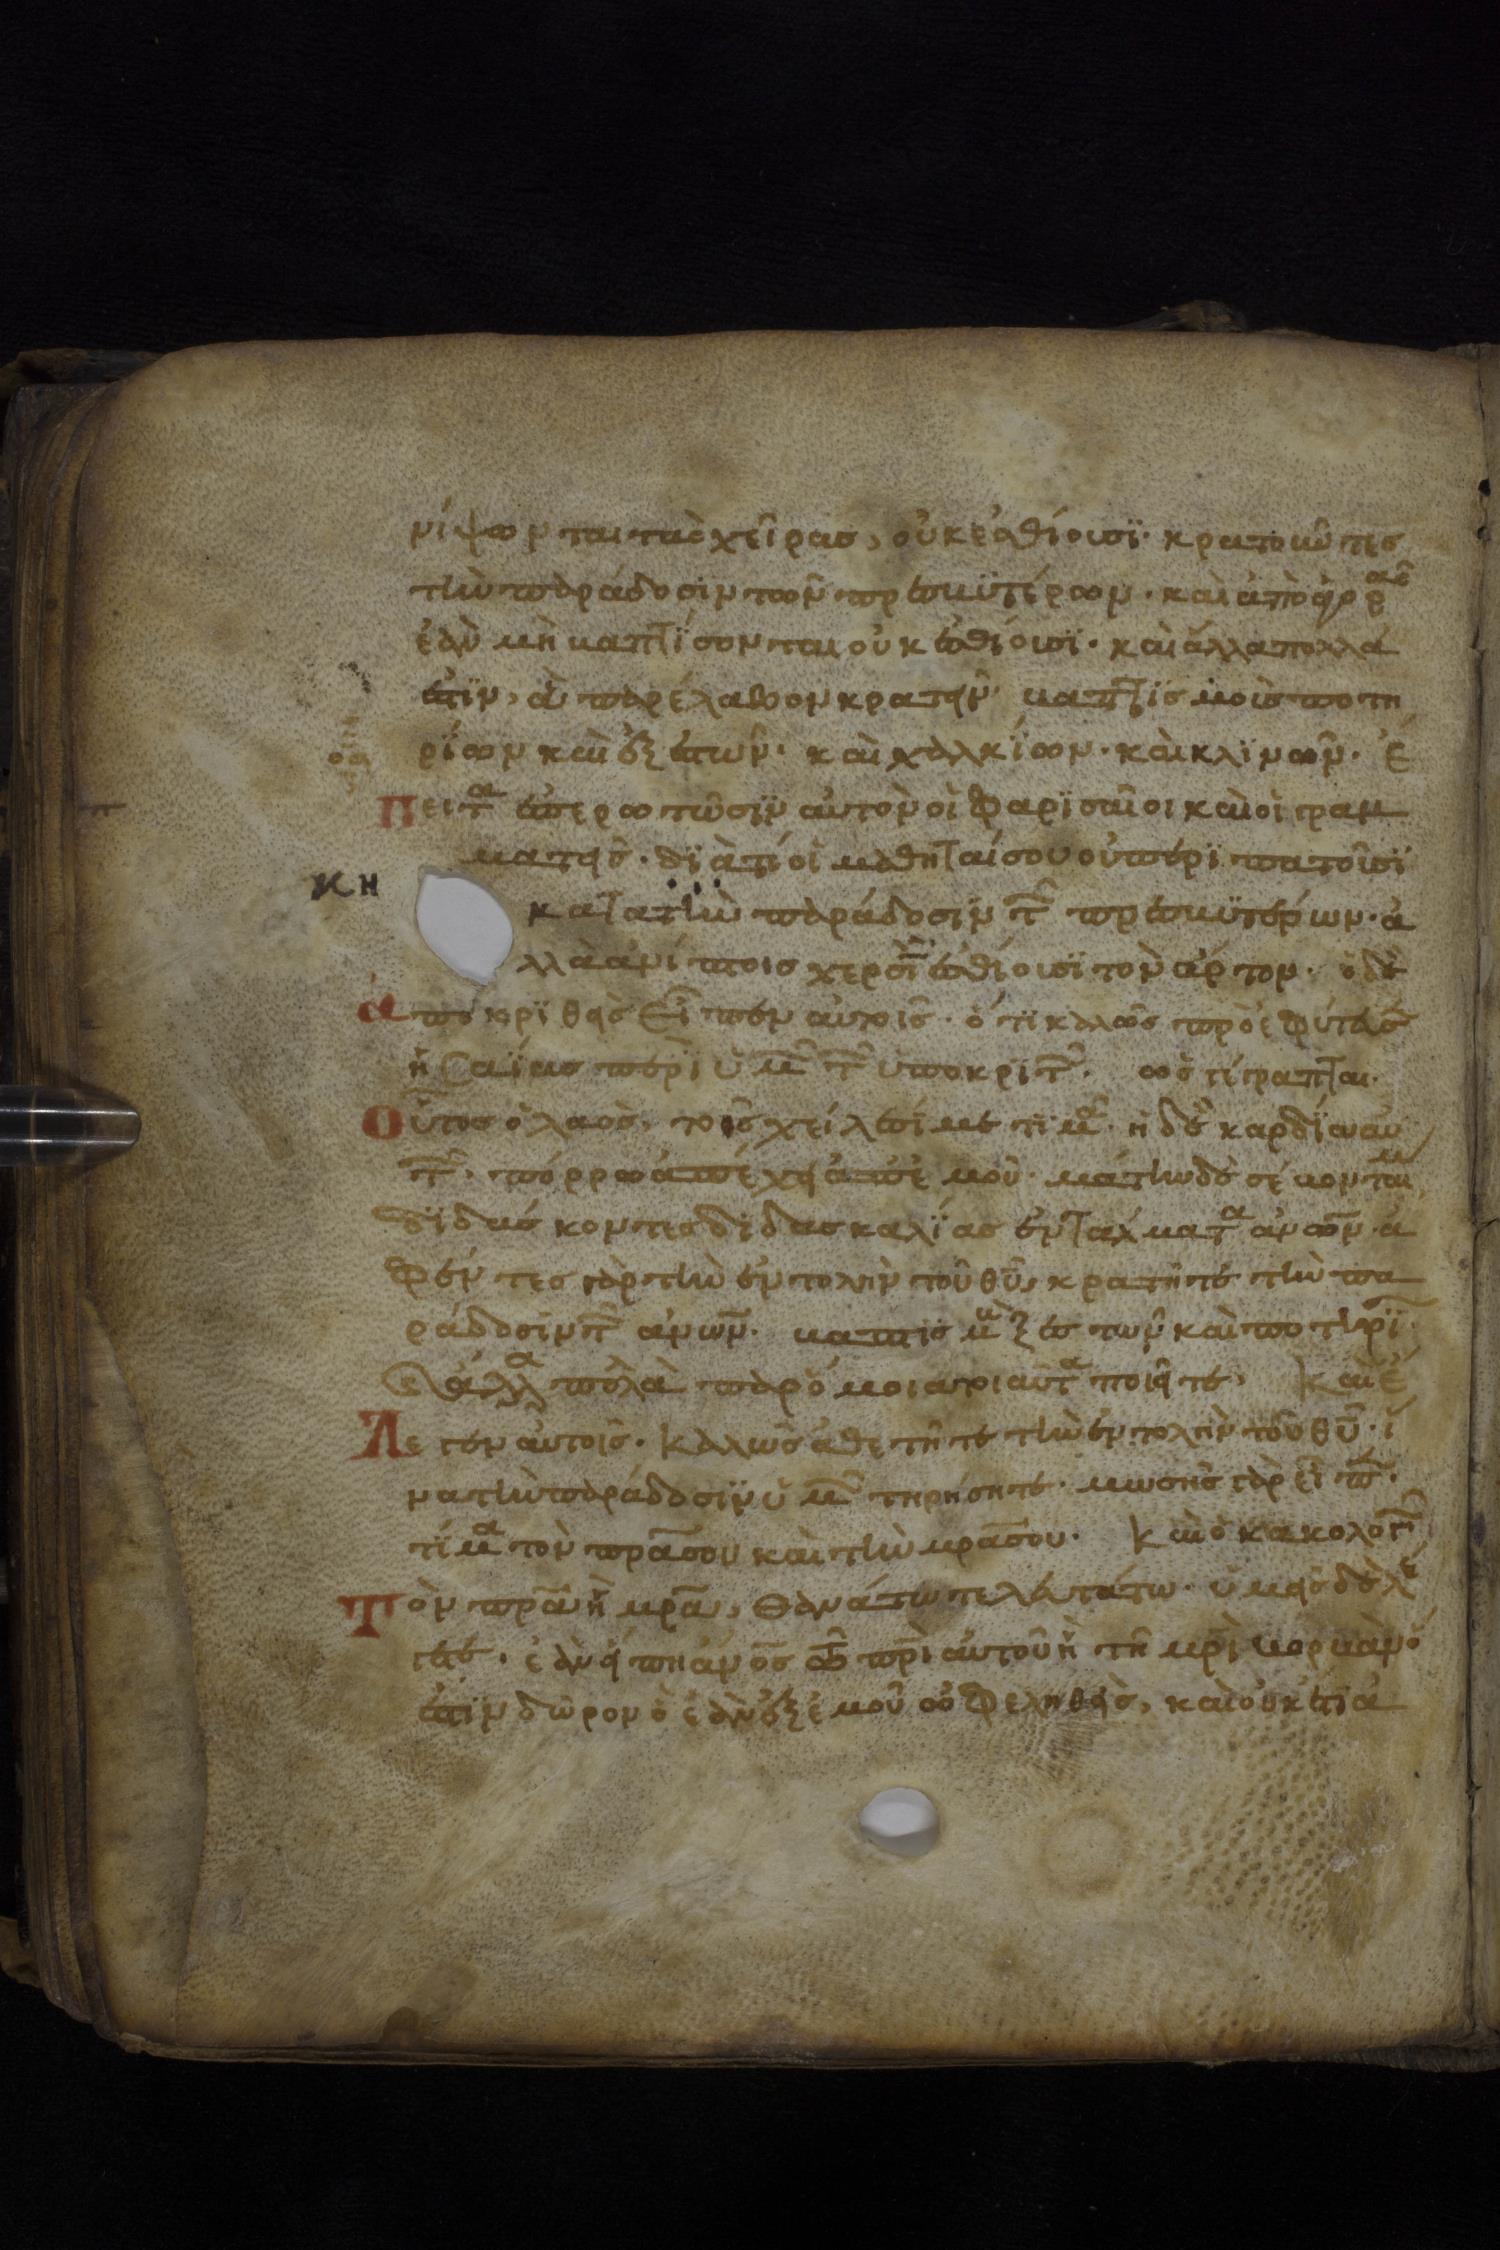 νίψωνται τὰς χεῖρας, οὐκ ἐσθίουσϊ· κρατοῦντες
τὴν παράδοσϊν τῶν πρεσβϋτέρων· καὶ ἀπὸ ἀγορᾶς
ἐὰν μὴ βαπτΐσονται οὐκ ἐσθίουσϊ· καὶ ἄλλα πολλά
ἐστϊν, ἃ παρέλαβον κρατεῖν· βαπτϊσμοὺς ποτη
ρΐων καὶ ξεστῶν· καὶ χαλκΐων· καὶ κλϊνῶν· Ἔ
Πειτα ἐπερωτῶσϊν αὐτὸν οἱ Φαρϊσαῖοι καὶ οἱ γραμ
ματεῖς· δϊατί οἱ μαθηταί σου οὐ περϊπατοῦσϊ
κη
κατὰ τὴν παράδοσϊν τῶν πρεσβϋτέρων· ἀ
λλὰ ἀνίπτοις χερσὶν ἐσθίουσϊ τὸν ἄρτον· ὁ δὲ
ἀποκρϊθεὶς εἶπεν αὐτοῖς· ὅτϊ καλῶς προεφύτευσε
ἡσαΐας περὶ ὑμῶν τῶν ὑποκρϊτῶν· ὡς γέγραπται·
Οὗτος ὁ λαὸς, τοῖς χείλεσί με τϊμᾶ· ἡ δὲ καρδία αὐ
τῶν, πόρρω ἀπέχει ἀπ' ἐμοῦ· μάτην δὲ σέβονταί με
δϊδάσκοντες δϊδασκαλΐας ἐντάλματα ἀνων· ἀ
Φέντες γὰρ τὴν ἐντολὴν τοῦ θυ, κρατεῖτε τὴν πα
ράδοσϊν τῶν ἀνων· βαπτισμοὺς ξεστῶν καὶ ποτηρϊ
ων ἄλλα πολλὰ παρόμοια τοιαῦτα ποιεῖτε· Καὶ ἔ
Λεγεν αὐτοῖς· Καλῶς ἀθετεῖτε τὴν ἐντολὴν τοῦ θυ· ἵ
να τὴν παράδοσϊν ὑμῶν τηρήσητε· μωσῆς γὰρ εἶπε·
τΐμα τὸν πρα σου καὶ τὴν μρα σου· Καὶ ὁ κακολογῶν
Τὸν πρα ἢ μρα, θανάτω τελευτάτω· ὑμεῖς δὲ λέ
γετε· ἐὰν εἴπη ἀνος τῶ πρι αὐτοῦ ἢ τῆ μρι κορβὰν ὅ
ἐστϊν δῶρον ὃ ἐὰν ἐξ ἐμοῦ ὠφεληθεὶς, καὶ οὐκέτϊ ἀ